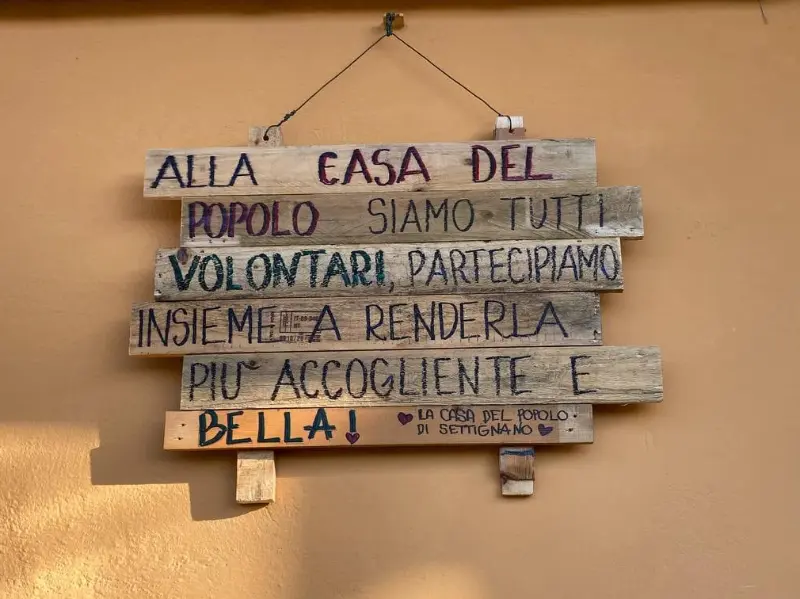 ALLA CASA DEL
POPOLO SIAMO TUTTI
VOLONTARI, PARTECIPIAMO
INSIEME A RENDERLA
PIU' ACCOGLIENTE E
BELLA!
LA CASA DEL POPOLO
DI SETTIGNANO